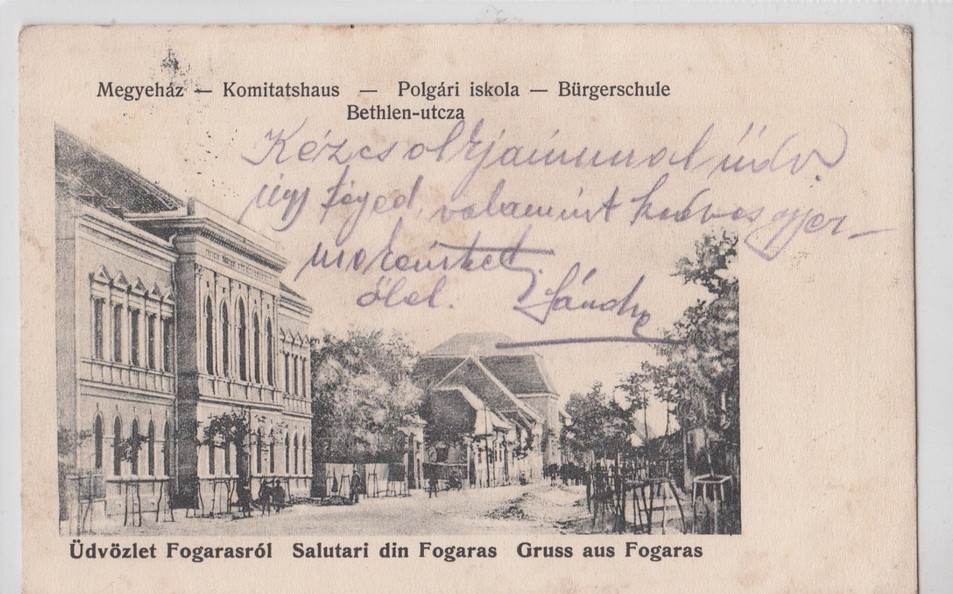 Megyeház — Komitatshaus — Polgári iskola — Bürgerschule
Bethlen-utcza
Kézcsókjaimmal üdv.
úgy Téged, valamint kedves gyer-
mekeinket
ölel. Sándor
Üdvözlet Fogarasról Salutari din Fogaras Gruss aus Fogaras